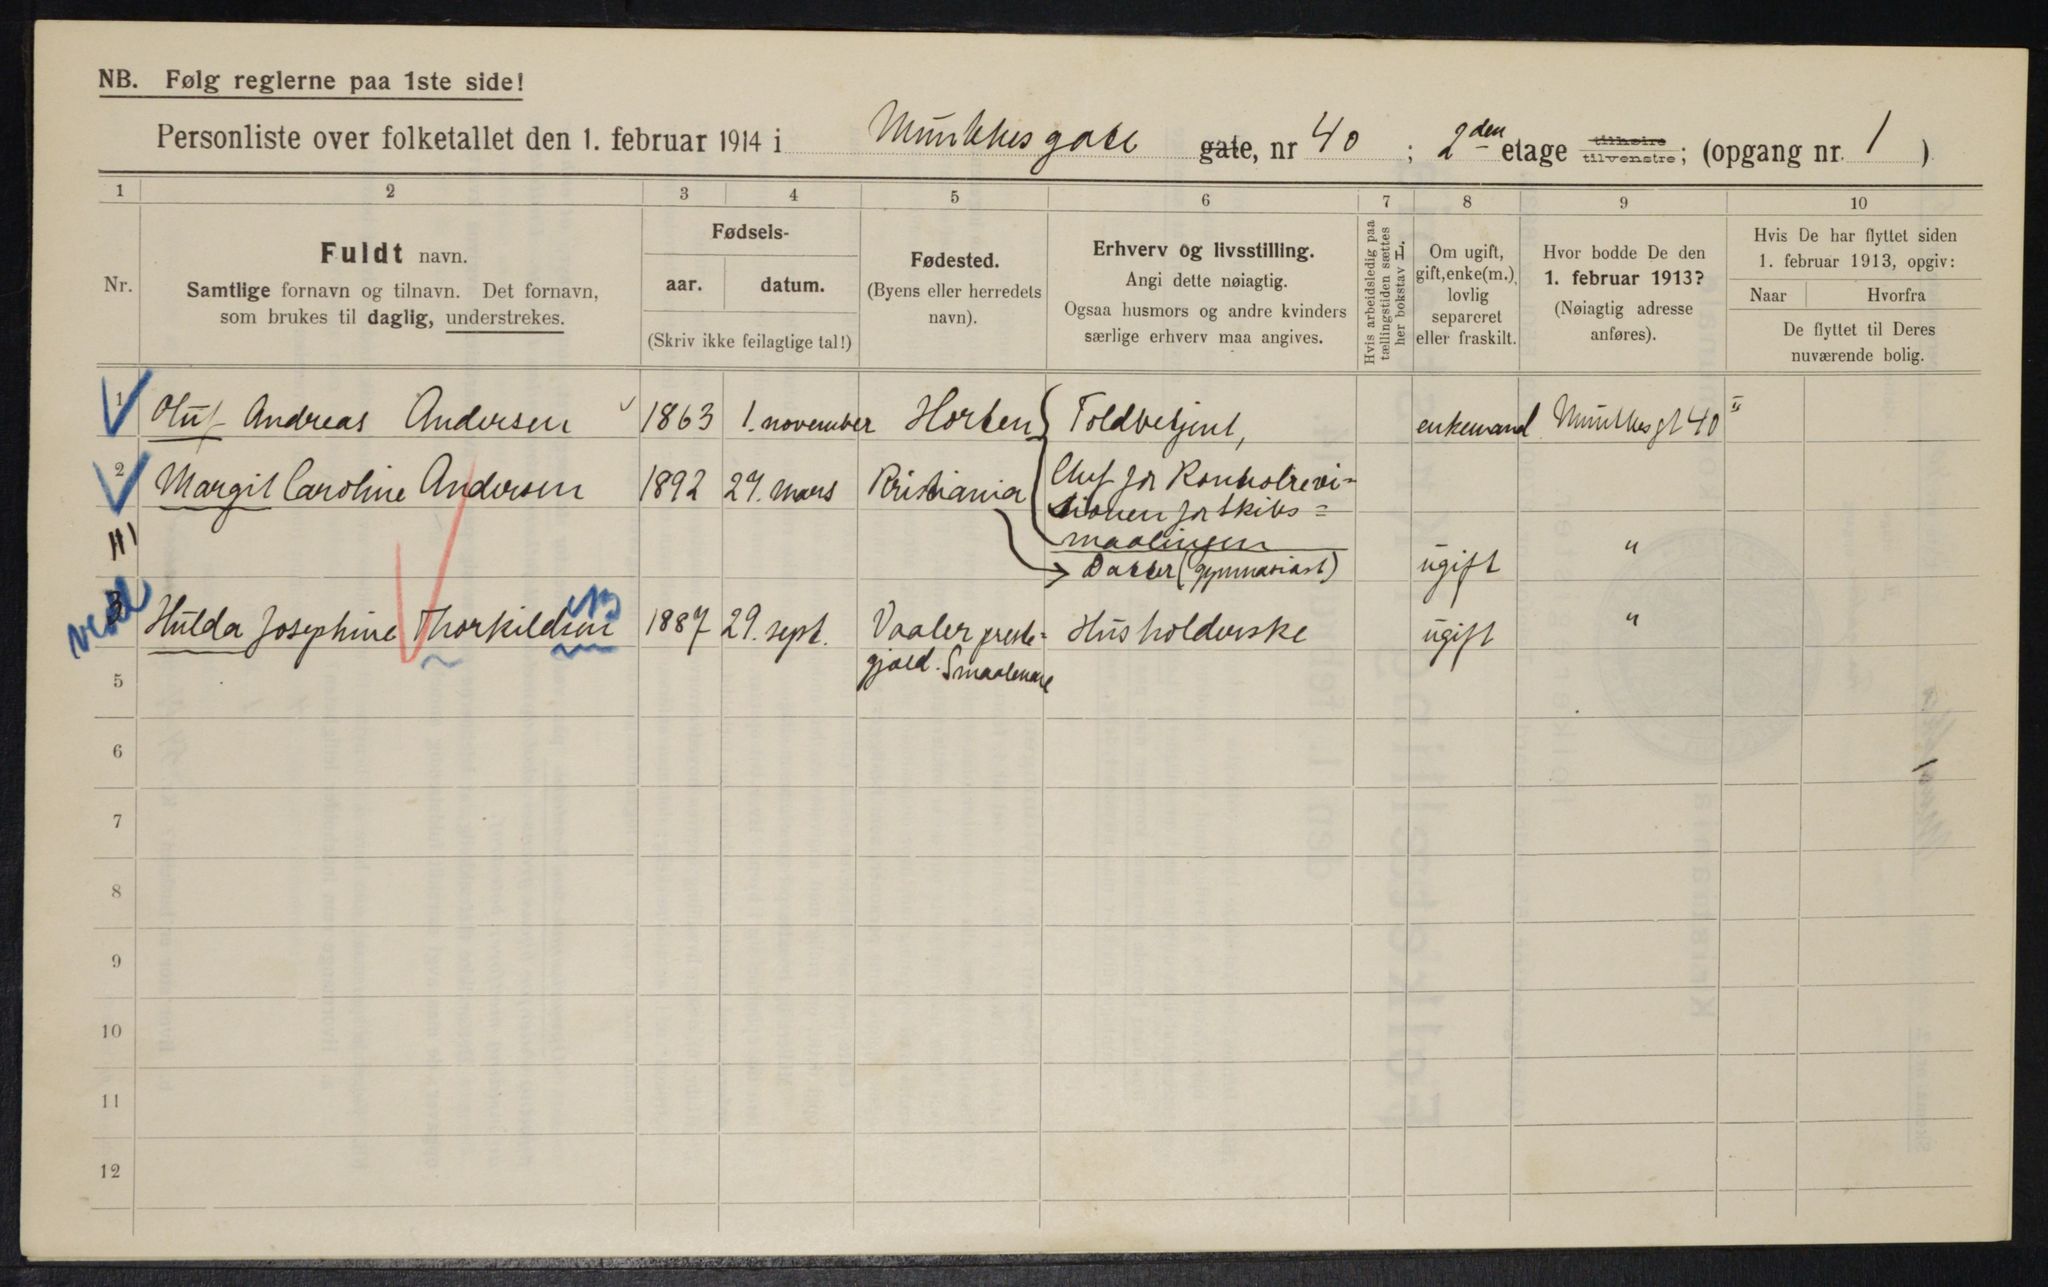 NB. Følg reglerne paa 1ste side!
Personliste over folketallet den 1. februar 1914 i Munkhesgate gate, nr 40 ; 2den etage tilhøire tilvenstre; (opgang nr. 1 )
1 2 3 4 5 6 7 8 9 10
Nr.
Fuldt navn.
Samtlige fornavn og tilnavn. Det fornavn,
som brukes til daglig, understrekes.
Fødsels-
aar. datum.
(Skriv ikke feilagtige tal!)
Fødested.
(Byens eller herredets
navn).
Erhverv og livsstilling.
Angi dette nøiagtig.
Ogsaa husmors og andre kvinders
særlige erhverv maa angives.
Hvis arbeidsledig paa
tællingstiden sættes
her bokstav L.
Om ugift,
gift, enke(m.),
lovlig
separeret
eller fraskilt.
Hvor bodde De den
1. februar 1913?
(Nøiagtig adresse
anføres).
Hvis De har flyttet siden
1. februar 1913, opgiv:
Naar Hvorfra
De flyttet til Deres
nuværende bolig.
1 Oluf Andreas Andersen 1863 1. november Horten Toldbetjent, enkemand Munkhesgt 40 II
2 Margit Caroline Andersen 1892 27. mars Kristiania Chef for Kontrolrevi-
sionen for skibs=
maalingen
Datter (gymnasiast) ugift "
3 Hulda Josephine Thorkildsen 1887 29. sept. Vaaler preste= Husholderske ugift "
gjeld. Smaalenene
5
6
7
8
9
10
11
12